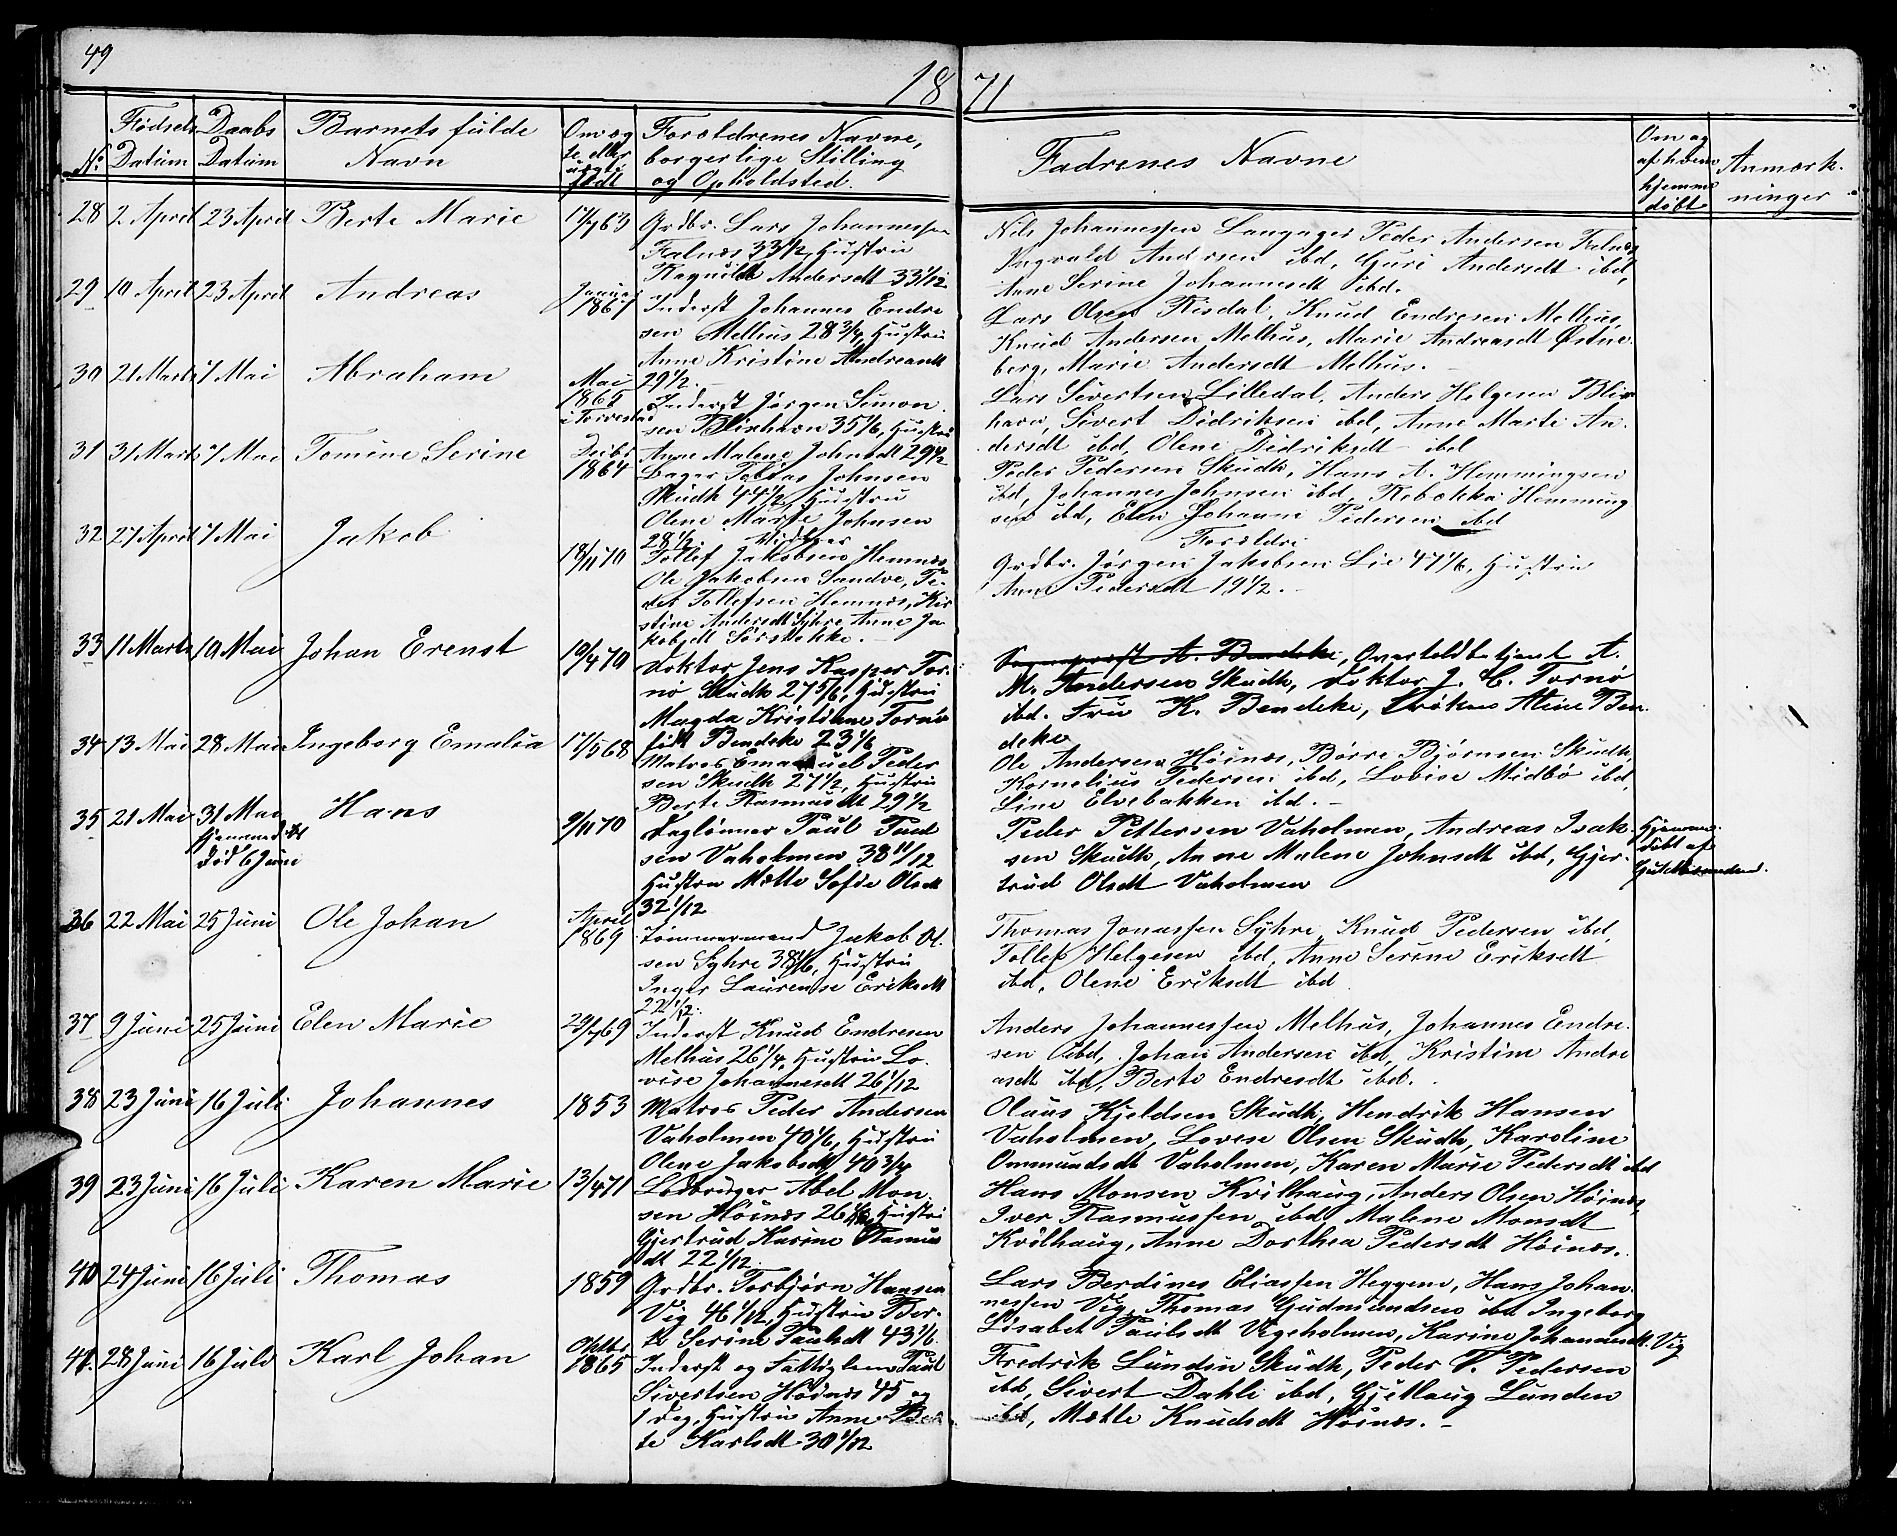 49
18 71
No
Fødsels Datum
Daabs Datum
Barnets fulde Navn
Om æg te eller uægte født
Forældrenes Navne, borgerlige Stilling og Opholdsted.
Fadrenes Navne
Om og af hvem hjemme døbt
Anmærk- ninger
28 2 April 23 April Berte Marie 17/7 63
Grdbr. Lars Johannessen
Falnæs 33 1/2, Hustru
Ragnilda Andersdt 33 1/12
Nils Johannessen Langager Peder Andersen Falnæs,
Ingvald Andersen ibd, Guri Andersdt ibd,
Anne Serine Johannesdt ibd.
29 10 April 23 April Andreas Januar 1867
Inderst Johannes Endre
sen Melhus 28 3/4, Hustru
Anne Kristine Andreasdt
29 1/2.
Lars Olsen Risdal, Knud Endresen Melhus,
Knud Andersen Melhus, Marie Andreasdt Østne
berg, Marie Andersdt Melhus.
30 21 Marts 7 Mai Abraham Mai 1865 i Torvestad
Inderst Jørgen Simon
sen Blixhavn 35 1/6, Hustru
Anne Malene Johnsdt 29 1/2
Lars Sivertsen Lilledal, Anders Helgesen Blix
havn, Sivert Didriksen ibd, Anne Marte An
dersdt ibd, Olene Didriksdt ibd
31 31 Marts 7 Mai Tomine Serine Decbr 1864
Bager Tobias Johnsen
Skudh 44 1/2, Hustru
Olene Marte Johnsen
28 1/2.
Peder Pedersen Skudh, Hans A. Hemmingsen
ibd, Johannes Johnsen ibd, Rebekka Hemming
sen ibd, Elen Johanne Pedersen ibd
32 27 April 7 Mai Jakob 18/11 70
Vidner
Tollef Jakobsen Hemnæs
Ole Jakobsen Sandve, Pe
der Tollefsen Hemnæs, Kir
stine Andersdt Syhre Anne Ja
kobsdt Sørstokke.
Forældre
Grdbr. Jørgen Jakobsen Lie 47 1/6, Hustru
Anne Pedersdt 19 1/2.
33 11 Marts 10 Mai Johan Erenst 10/4 70
Doktor Jens Kasper Tor
nø Skudh 27 5/6, Hustru
Magda Kristiane Tornø
født Bendeke 23 1/6
Sogneprest A. Bendeke, Overtoldbetjent A.
M. Andersen Skudh, Doktor J. C. Tornø
ibd. Fru K. Bendeke, Frøken Aline Ben
deke
34 13 Mai 28 Mai Ingeborg Emalia 17/5 68
Matros Emanuel Peder
sen Skudh 27 1/2, Hustru
Berte Rasmusdt 29 1/2
Ole Andersen Høinæs, Børre Bjørnsen Skudh,
Kornelius Pedersen ibd, Lovise Midbø ibd,
Line Elvebakken ibd.
35 21 Mai 31 Mai Hjemmedøbt Død 6 Juni Hans 9/11 70
Daglønner Paul Paul
sen Vaholmen 38 11/12
Hustru Mette Sofie Olsdt
32 1/12
Peder Pettersen Vaholmen, Andreas Isak
sen Skudh, Anne Malene Johnsdt ibd, Gjer
trud Olsdt Vaholmen
Hjemme
døbt af
36 22 Mai 25 Juni Ole Johan April 1869
Tømmermand Jakob Ol
sen Syhre 38 1/6, Hustru
Inger Laurense Eriksdt
22 1/2.
Thomas Jonassen Syhre, Knud Pedersen ibd,
Tollef Helgesen ibd, Anne Serine Eriksdt
ibd, Olene Eriksdt ibd
37 9 Juni 25 Juni Elen Marie 29/7 69
Inderst Knud Endresen
Melhus 26 1/4, Hustru Lo
vise Johannesdt 26 1/12
Anders Johannessen Melhus, Johannes Endre
sen ibd, Johan Andersen ibd, Kristine Andre
asdt ibd, Berte Endresdt ibd.
38 23 Juni 16 Juli Johannes 1853
Matros Peder Andersen
Vaholmen 40 1/6, Hustru
Olene Jakobsdt 40 3/4
Olaus Kjeldsen Skudh, Hendrik Hansen
Vaholmen, Lovese Olsen Skudh, Karoline
Ommundsdt Vaholmen, Karen Marie Pedersdt ibd
39 23 Juni 16 Juli Karen Marie 13/4 71
Lodbruger Abel Mon
sen Høinæs 26 1/6, Hustru
Gjertrud Karine Rasmus
dt 22 1/12.
Hans Monsen Kvilhaug, Anders Olsen Høinæs,
Iver Rasmussen ibd Malene Monsdt
Kvilhaug, Anne Dorthea Pedersdt Høinæs.
40 24 Juni 16 Juli Thomas 1859
Grdbr. Torbjørn Hansen
Vig 46 1/12, Hustru Ber
te Serine Paulsdt 43 1/6.
Lars Berdines Eliassen Heggem, Hans Johan
nessen Vig, Thomas Gudmundsen ibd Ingeborg
Lisabet Paulsdt Vigeholmen, Karine Johannesdt. Vig
41. 28 Juni 16 Juli Karl Johan Oktbr 1865
Inderst og Fattiglem Paul
Sivertsen Høinæs 45 og
1 Dag, Hustru Anne Ber
te Karlsdt 30 1/12
Fredrik Lundin Skudh, Peder T. Pedersen
ibd, Sivert Dahle ibd, Gjetlaug Lunden
ibd, Mette Knudsdt Høinæs.